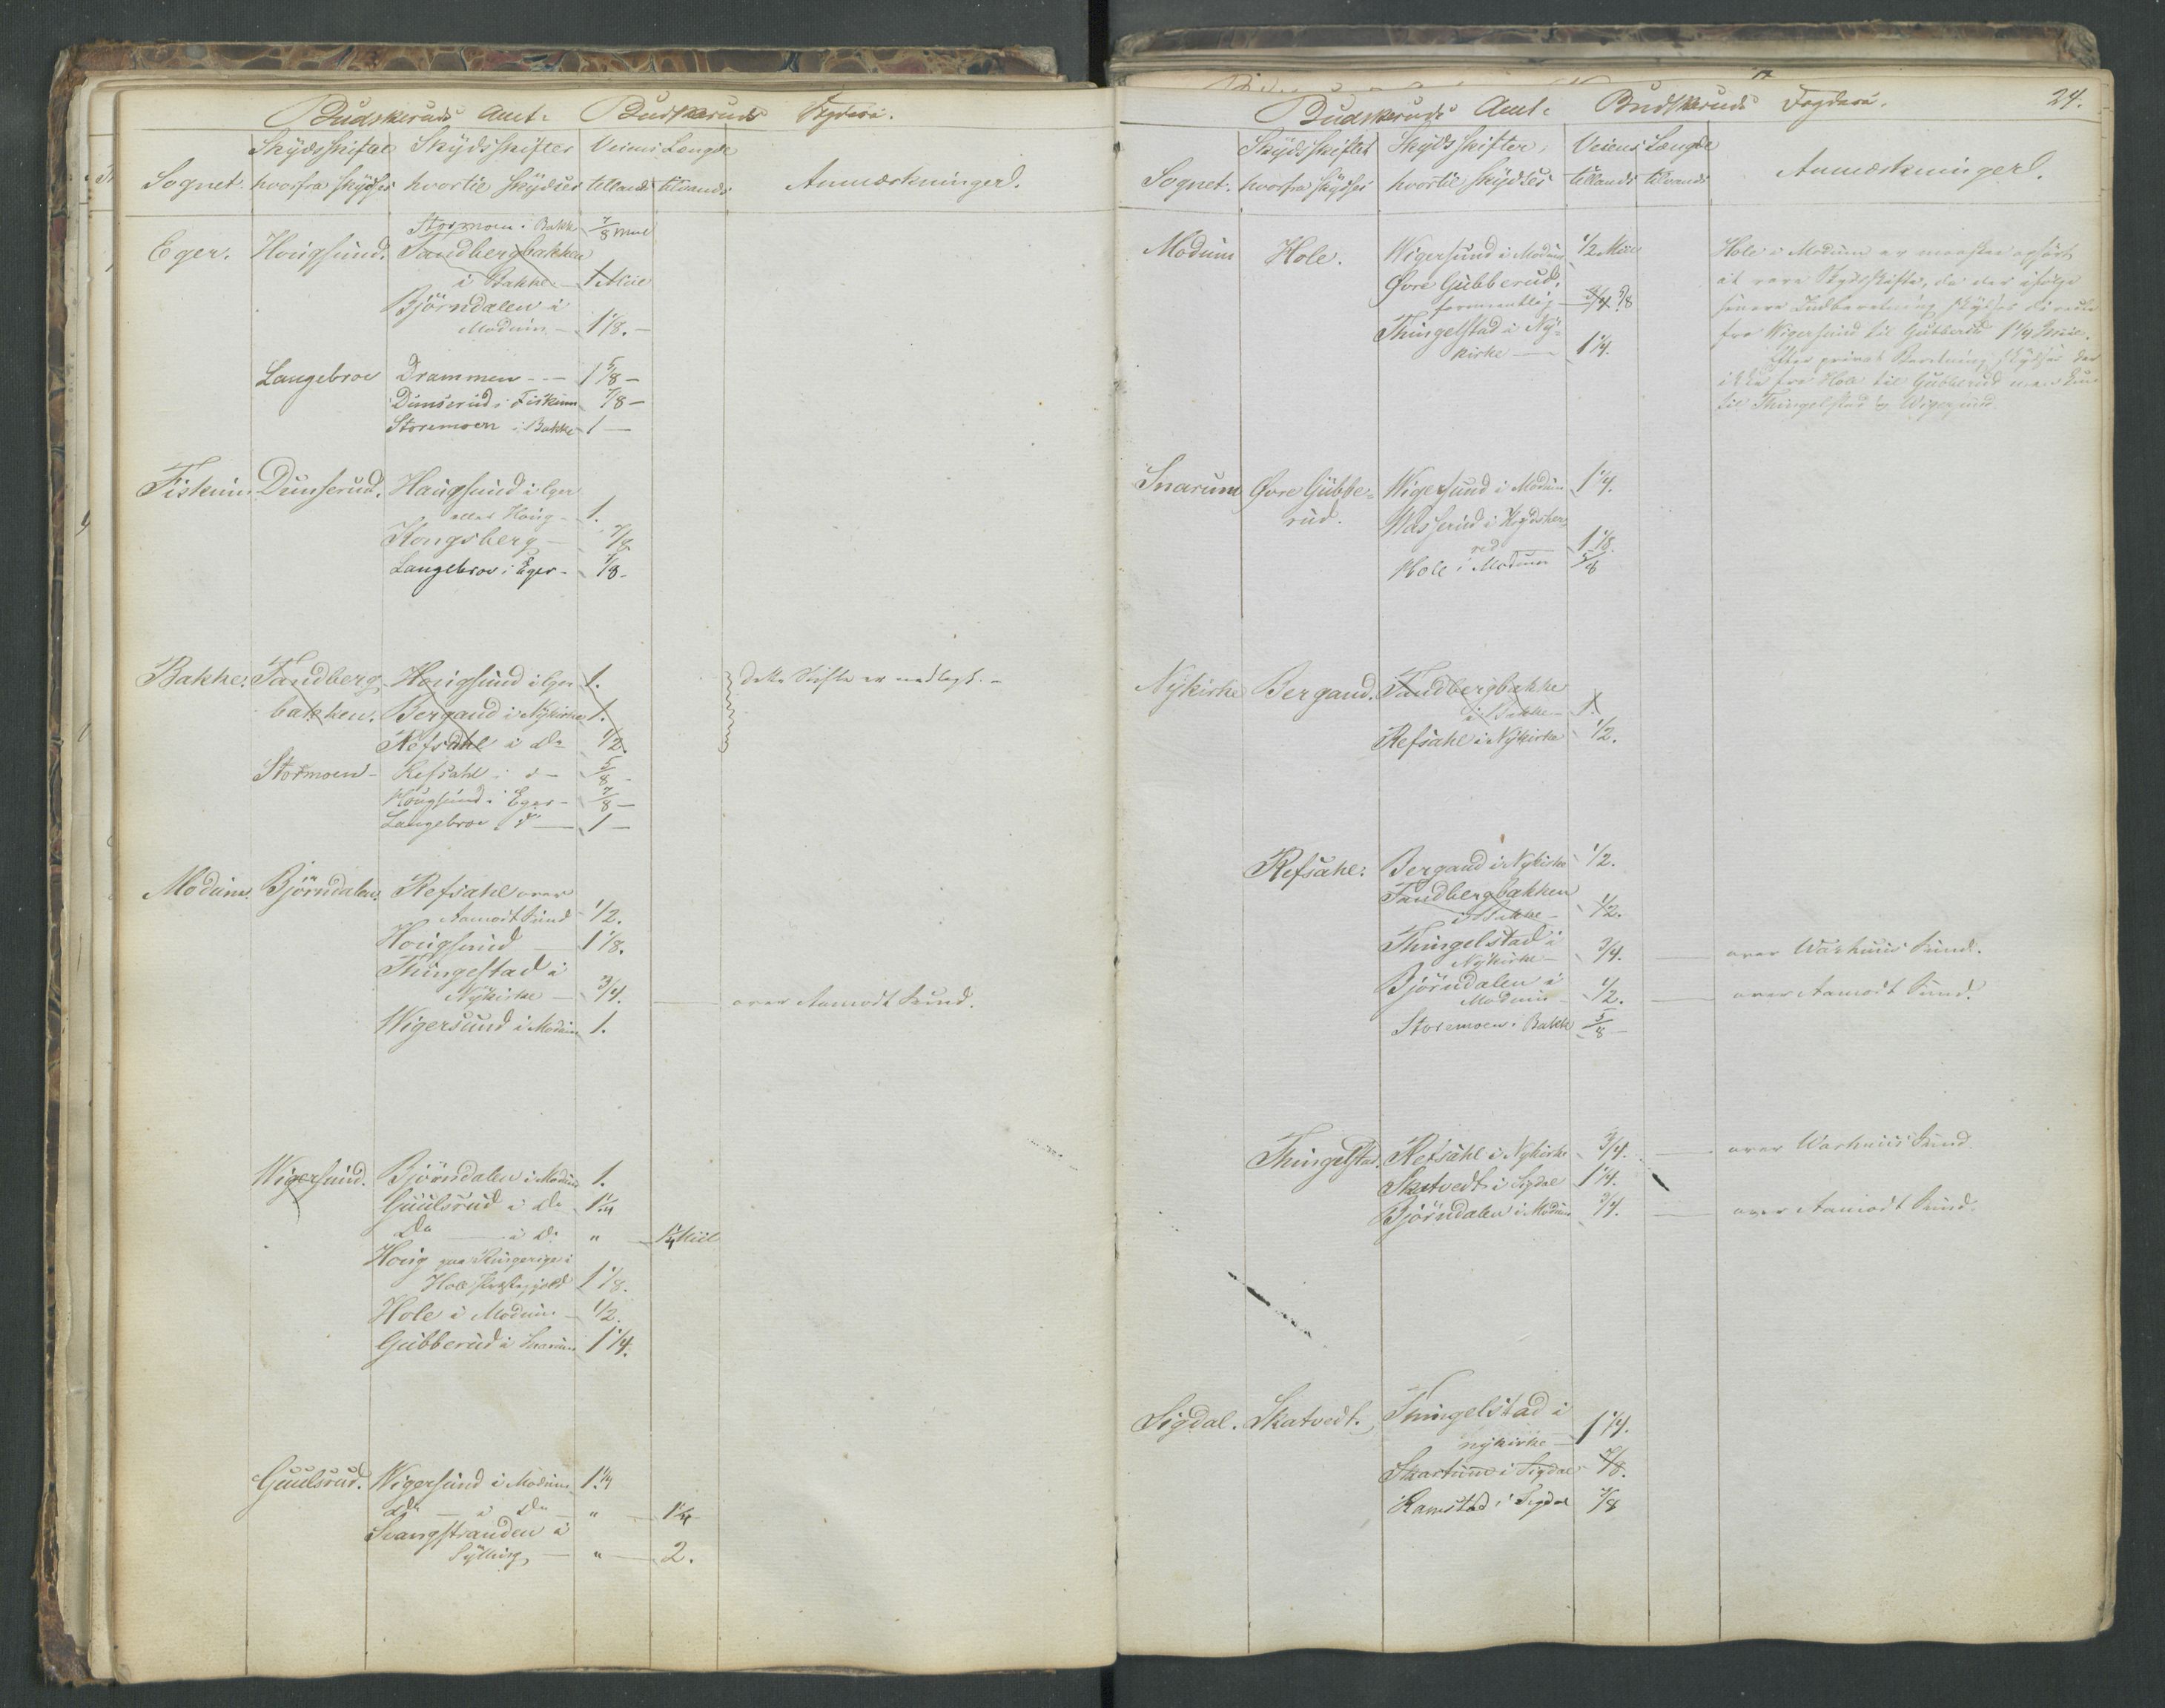 Budskeruds Amt. Budskeruds Fogderi.
Skydsskiftet Skydsskifter Veiens Længde
Sognet. hvorfra skydses hvortil skydses tillands tilvands Anmærkninger.
Stormoen i Bakke 7/8 Miil
Eger. Hougsund. Tandbergbakken
i Bakke — 1 Miil
Björndalen i
Modum — 1 1/8. —
Langebroe Drammen - - - 1 5/8 —
Dunserud i Fiskum 7/8 —
Storemoen i Bakke 1 —
Fiskum Dunserud. Haugsund i Eger
eller Houg — 1.
Kongsberg — 7/8.
Langebroe i Eger - 7/8 -
Bakke. Tandberg Hougsund i Eger 1. dette Skifte er nedlagt. -
bakken. Bergand i Nykirke 1.
Refsahl i Do 1/2.
Stormoen - Refsahl i d - 5/8 -
Hougsund i Eger - 7/8 —
Langebroe i do — 1 —
Modum. Björndalen. Refsahl over
Aamodt Sund 1/2.
Hougsund — 1 1/8.
Thingelstad i
Nykirke — 3/4. over Aamodt Sund.
Wigersund i Modum 1.
Wigersund. Björndalen i Modum 1.
Guulsrud i Do 1 1/4
Do — i Do " 1 1/4 Miil
Houg paa Ringerige i
Hole Præstegjeld 1 1/8.
Hole i Modum — 1/2.
Gubberud i Snarum 1 1/4.
Guulsrud. Wigersund i Modum 1 1/4
Do — i Do — " 1 1/4
Svangstranden i
Sylling — " 2.
24.
Budskeruds Amt. Budskeruds Fogderi.
Skydsskiftet Skydsskifter, Veiens Længde
Sognet. hvorfra skydses hvortil skydses tillands tilvands Anmærkninger.
Modum Hole. Wigersund i Modum 1/2 Miil Hole i Modum er maaskee ophört
Øvre Gubberud, at være Skydsskifte, da der ifølge
formentlig — 3/4 5/8 senere Indberetning skydses directe
Thingelstad i Ny- fra Wigersund til Gubberud 1 1/4 Miil.
kirke — 1 1/4. Efter privat Beretning skydses der
ikke fra Hole til Gubberud men kun
til Thingelstad og Wigersund.
Snarum Øvre Gubbe- Wigersund i Modum 1 1/4.
rud. Wasserud i Krydsher-
red 1 1/8.
Hole i Modum 5/8
Nykirke Bergand. Tandbergbakke
i Bakke — 1.
Refsahl i Nykirke 1/2.
Refsahl. Bergand i Nykirke 1/2.
Tandbergbakken
i Bakke — 1/2.
Thingelstad i
Nykirke — 3/4. over Warhuus Sund.
Björndalen i
Modum — 1/2. over Aamodt Sund.
Storemoen i Bakke 5/8 —
Thingelstad. Refsahl i Nykirke 3/4. over Warhuus Sund
Skatvedt i Sigdal 1 1/4.
Björndalen i Modum 3/4. over Aamodt Sund.
Sigdal. Skatvedt. Thingelstad i
Nykirke — 1 1/4.
Skartum i Sigdal 7/8.
Ramstad i Sigdal 7/8